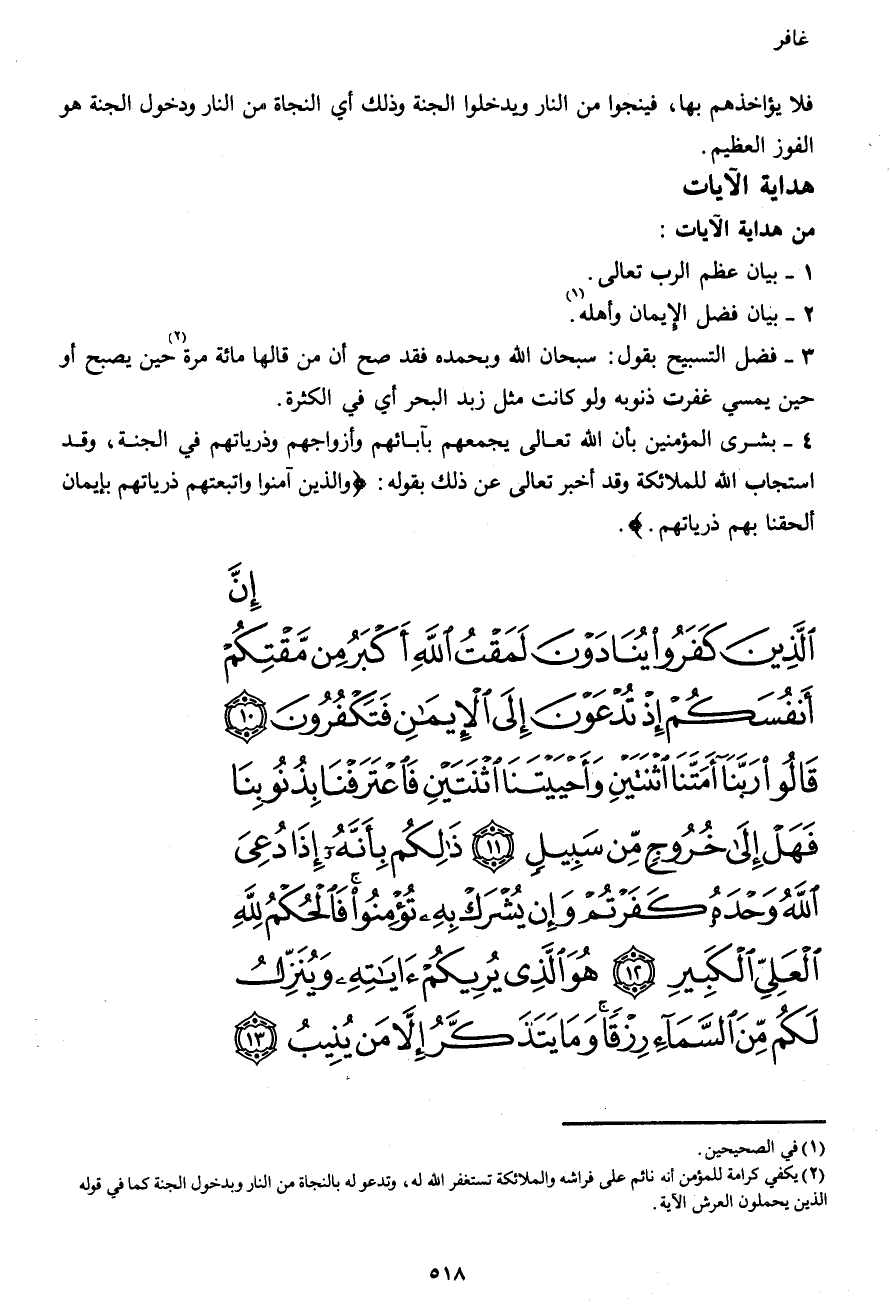 غافر
فلا يؤاخذهم بها، فينجوا من النار ويدخلوا الجنة وذلك أي النجاة من النار ودخول الجنة هو
الفوز العظيم.
هداية الآيات
من هداية الآيات :
١ ـ بيان عظم الرب تعالى.
٢ ـ بيان فضل الإيمان وأهله(١).
٣ ـ فضل التسبيح بقول: سبحان الله وبحمده فقد صح أن من قالها مائة مرة(٢) حين يصبح أو
حين يمسي غفرت ذنوبه ولو كانت مثل زبد البحر أي في الكثرة.
٤ ـ بشرى المؤمنين بأن الله تعالى يجمعهم بآبائهم وأزواجهم وذرياتهم في الجنة، وقد
استجاب الله للملائكة وقد أخبر تعالى عن ذلك بقوله: ﴿والذين آمنوا واتبعتهم ذرياتهم بإيمان
ألحقنا بهم ذرياتهم.﴾.
إِنَّ
ٱلَّذِينَ كَفَرُوا۟ يُنَادَوْنَ لَمَقْتُ ٱللَّهِ أَكْبَرُ مِن مَّقْتِكُمْ
أَنفُسَكُمْ إِذْ تُدْعَوْنَ إِلَى ٱلْإِيمَٰنِ فَتَكْفُرُونَ ١٠
قَالُوا۟ رَبَّنَآ أَمَتَّنَا ٱثْنَتَيْنِ وَأَحْيَيْتَنَا ٱثْنَتَيْنِ فَٱعْتَرَفْنَا بِذُنُوبِنَا
فَهَلْ إِلَىٰ خُرُوجٍ مِّن سَبِيلٍ ١١ ذَٰلِكُم بِأَنَّهُۥٓ إِذَا دُعِىَ
ٱللَّهُ وَحْدَهُۥ كَفَرْتُمْ وَإِن يُشْرَكْ بِهِۦ تُؤْمِنُوا۟ ۚ فَٱلْحُكْمُ لِلَّهِ
ٱلْعَلِىِّ ٱلْكَبِيرِ ١٢ هُوَ ٱلَّذِى يُرِيكُمْ ءَايَٰتِهِۦ وَيُنَزِّلُ
لَكُم مِّنَ ٱلسَّمَآءِ رِزْقًا ۚ وَمَا يَتَذَكَّرُ إِلَّا مَن يُنِيبُ ١٣
(١) في الصحيحين.
(٢) يكفي كرامة للمؤمن أنه نائم على فراشه والملائكة تستغفر الله له، وتدعو له بالنجاة من النار وبدخول الجنة كما في قوله
الذين يحملون العرش الآية.
٥١٨